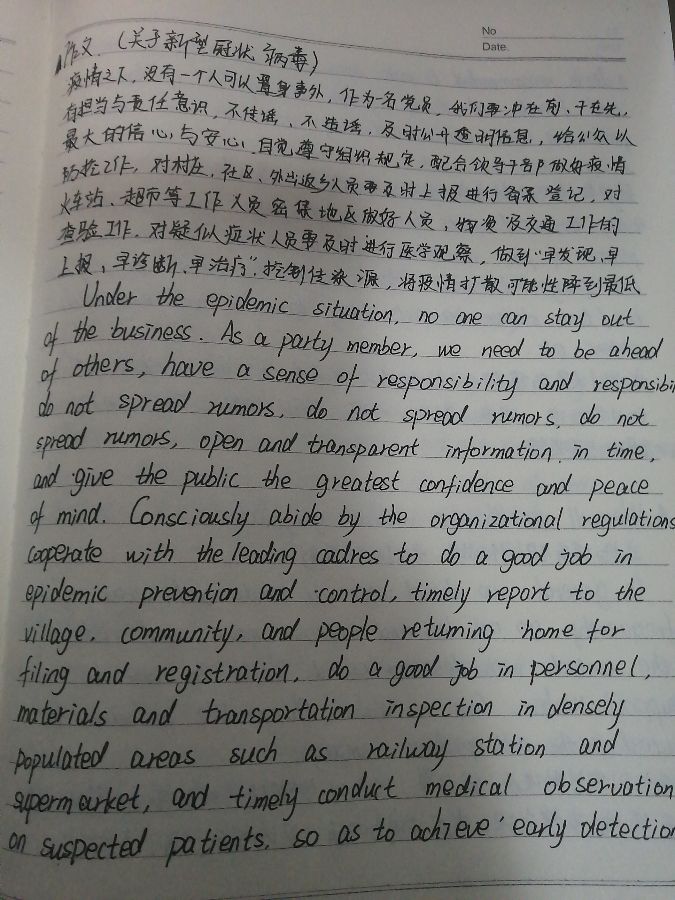 No
Date.
作文.（关于新型冠状病毒）
疫情之下,没有一个人可以置身事外,作为一名党员,我们要冲在前、干在先,
有担当与责任意识,不传谣、不造谣,及时公开透明信息,给公众以
最大的信心与安心,自觉遵守组织规定,配合领导干部做好疫情
防控工作,对村庄,社区、外出返乡人员要及时上报进行备案登记,对
火车站、超市等工作人员密集地区做好人员,物资及交通工作的
查验工作,对疑似症状人员要及时进行医学观察,做到"早发现、早
上报、早诊断、早治疗",控制传染源,将疫情扩散可能性降到最低
Under the epidemic situation, no one can stay out
of the business. As a party member, we need to be ahead
of others, have a sense of responsibility and responsibi
do not spread rumors, do not spread rumors, do not
spread rumors, open and transparent information in time,
and give the public the greatest confidence and peace
of mind. Consciously abide by the organizational regulations
cooperate with the leading cadres to do a good job in
epidemic prevention and control, timely report to the
village, community, and people returning home for
filing and registration, do a good job in personnel,
materials and transportation inspection in densely
populated areas such as railway station and
supermarket, and timely conduct medical observation
on suspected patients, so as to achieve 'early detection